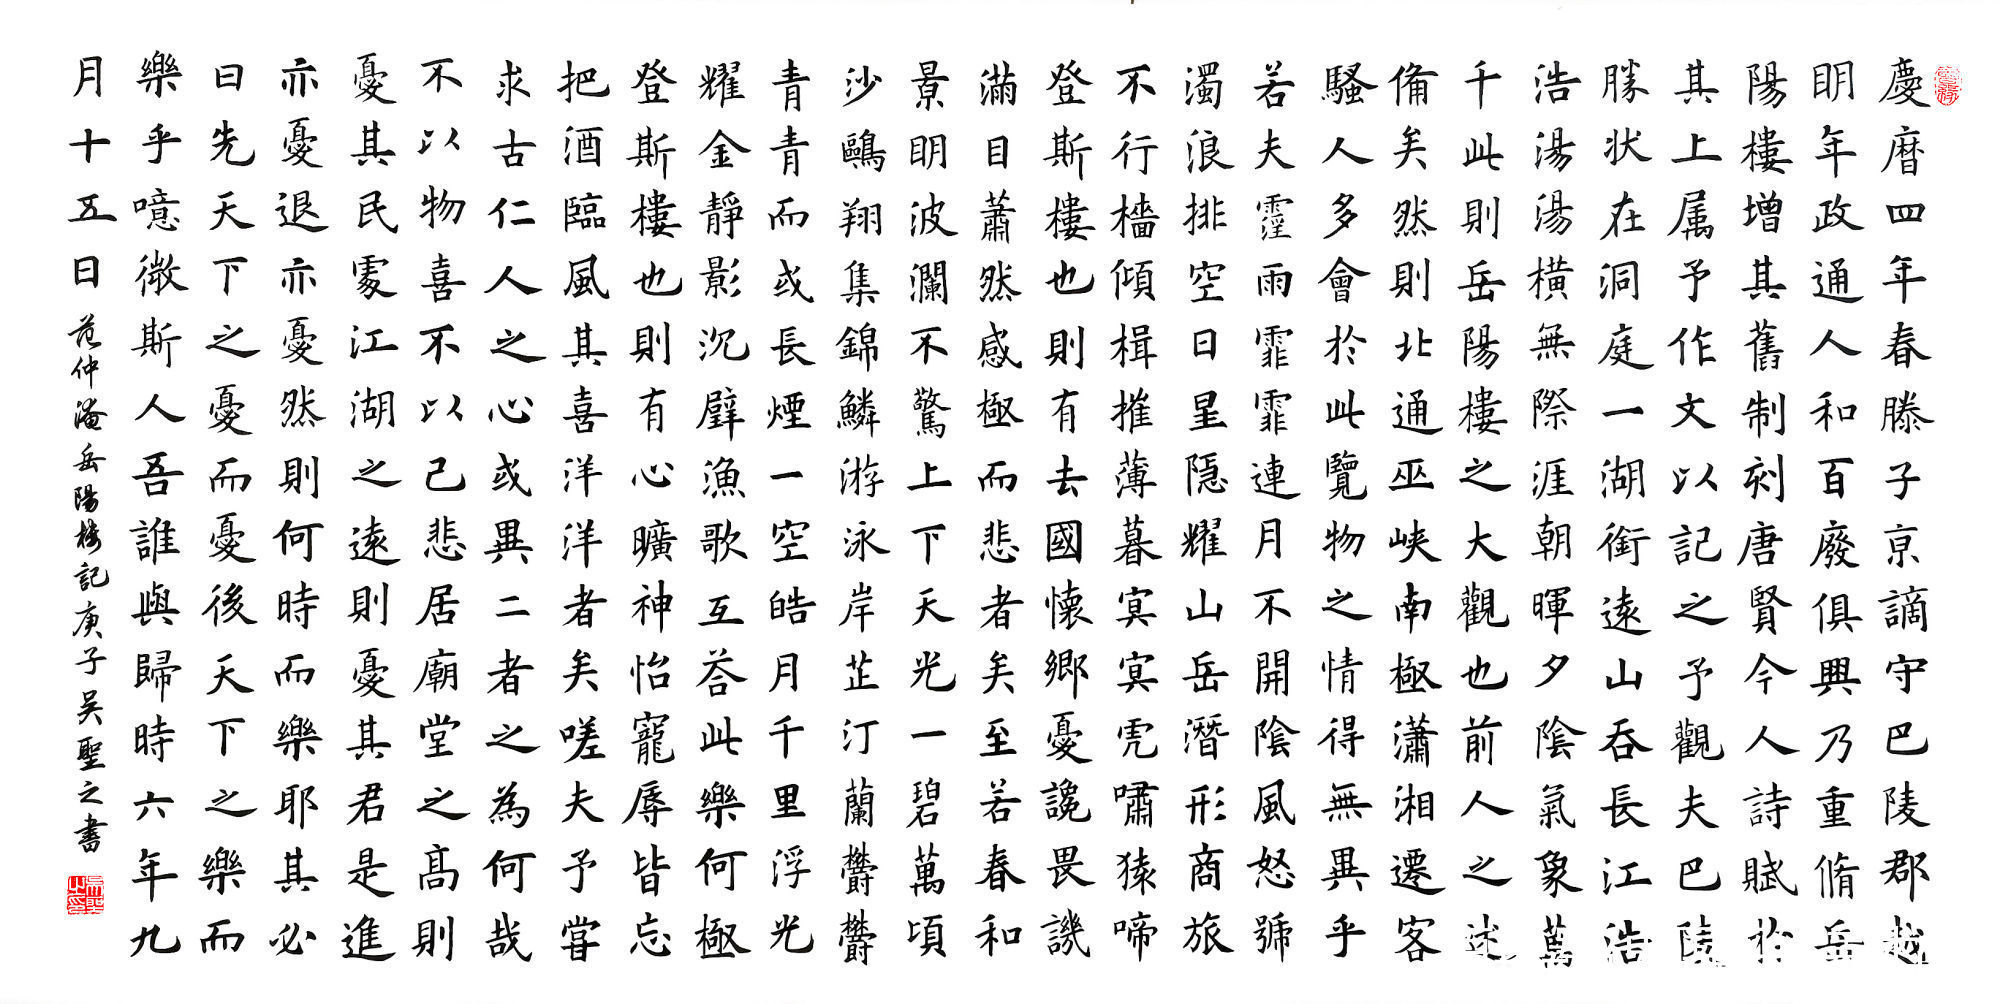 慶曆四年春滕子京謫守巴陵郡越
明年政通人和百廢俱興乃重脩岳
陽樓增其舊制刻唐賢今人詩賦於
其上属予作文以記之予觀夫巴陵
勝状在洞庭一湖銜遠山吞長江浩
浩湯湯橫無際涯朝暉夕陰氣象萬
千此則岳陽樓之大觀也前人之述
備矣然則北通巫峽南極瀟湘遷客
騷人多會於此覽物之情得無異乎
若夫霪雨霏霏連月不開陰風怒號
濁浪排空日星隱耀山岳潛形商旅
不行檣傾楫摧薄暮冥冥虎嘯猿啼
登斯樓也則有去國懷鄉憂讒畏譏
滿目蕭然感極而悲者矣至若春和
景明波瀾不驚上下天光一碧萬頃
沙鷗翔集錦鱗游泳岸芷汀蘭鬱鬱
青青而或長煙一空皓月千里浮光
耀金靜影沉璧漁歌互答此樂何極
登斯樓也則有心曠神怡寵辱皆忘
把酒臨風其喜洋洋者矣嗟夫予嘗
求古仁人之心或異二者之為何哉
不以物喜不以己悲居廟堂之高則
憂其民處江湖之遠則憂其君是進
亦憂退亦憂然則何時而樂耶其必
曰先天下之憂而憂後天下之樂而
樂乎噫微斯人吾誰與歸時六年九
月十五日 范仲淹岳陽樓記庚子吳聖之書